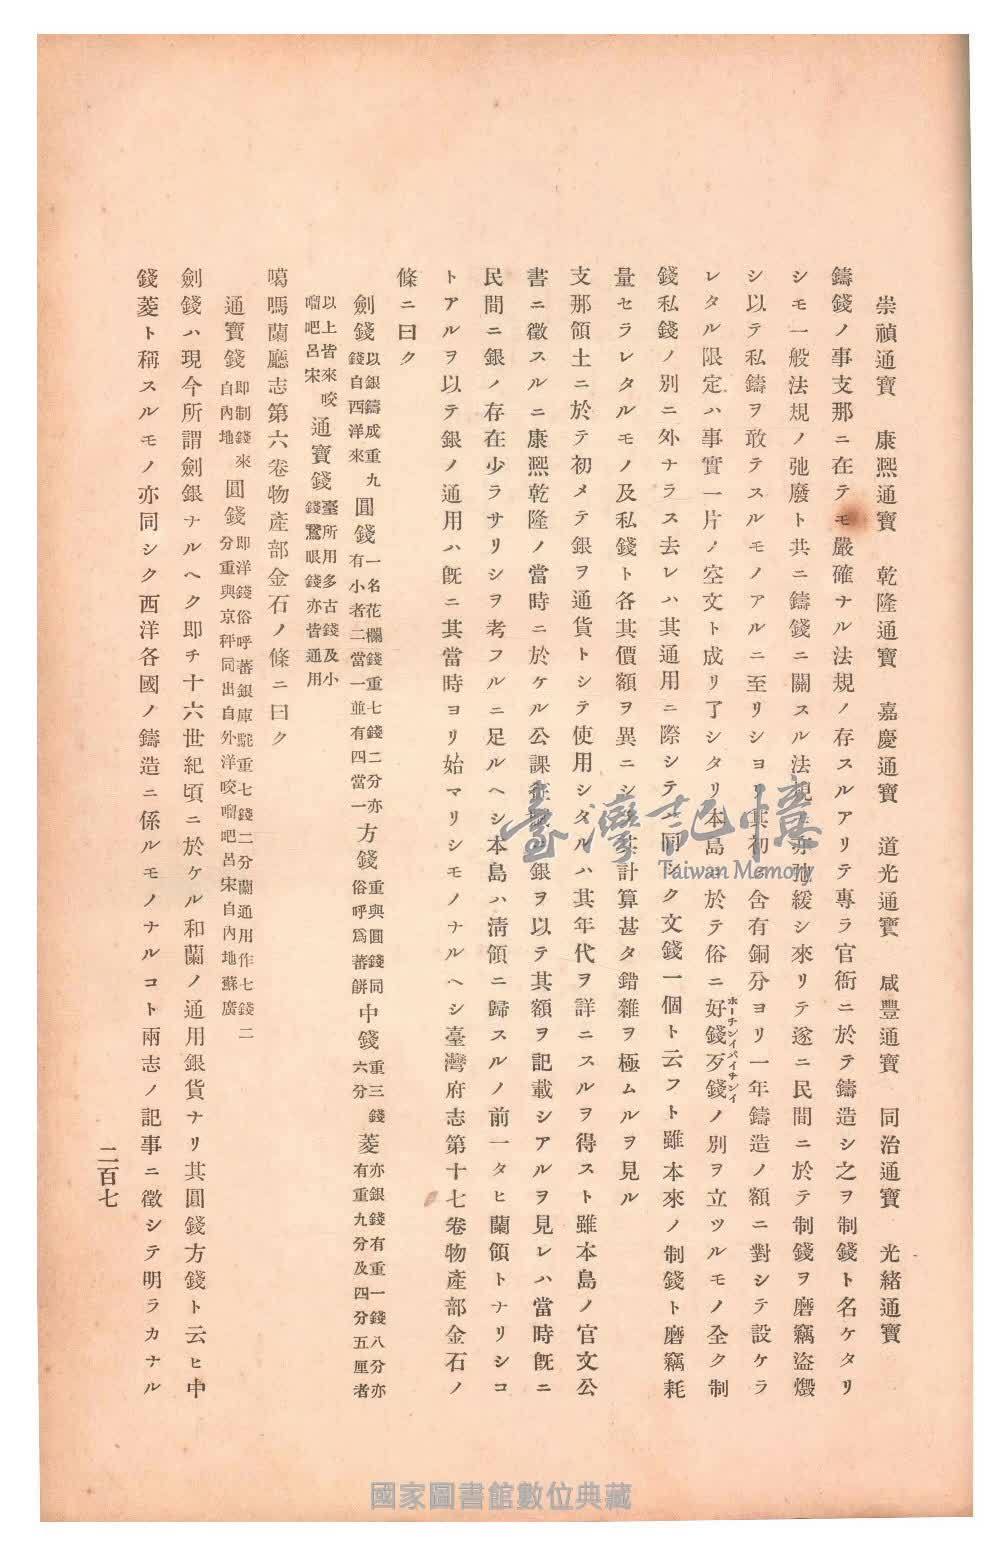 崇禎通寶　康熙通寶　乾隆通寶　嘉慶通寶　道光通寶　咸豐通寶　同治通寶　光緒通寶
鑄錢ノ事支那ニ在テモ嚴確ナル法規ノ存スルアリテ專ラ官衙ニ於テ鑄造シ之ヲ制錢ト名ケタリ
シモ一般法規ノ弛廢ト共ニ鑄錢ニ關スル法規モ亦弛緩シ來リテ遂ニ民間ニ於テ制錢ヲ磨竊盜燬
シ以テ私鑄ヲ敢テスルモノアルニ至リシヨリ其初メ含有銅分ヨリ一年鑄造ノ額ニ對シテ設ケラ
レタル限定ハ事實一片ノ空文ト成リ了シタリ本島ニ於テ俗ニ好錢歹錢ノ別ヲ立ツルモノ全ク制
ホーチンイパイチンイ
錢私錢ノ別ニ外ナラス去レハ其通用ニ際シテハ同シク文錢一個ト云フト雖本來ノ制錢ト磨竊耗
量セラレタルモノ及私錢ト各其價額ヲ異ニシ其計算甚タ錯雜ヲ極ムルヲ見ル
支那領土ニ於テ初メテ銀ヲ通貨トシテ使用シタルハ其年代ヲ詳ニスルヲ得スト雖本島ノ官文公
書ニ徵スルニ康熙乾隆ノ當時ニ於ケル公課征 銀ヲ以テ其額ヲ記載シアルヲ見レハ當時旣ニ
民間ニ銀ノ存在少ラサリシヲ考フルニ足ルヘシ本島ハ清領ニ歸スルノ前一タヒ蘭領トナリシコ
トアルヲ以テ銀ノ通用ハ旣ニ其當時ヨリ始マリシモノナルヘシ臺灣府志第十七卷物產部金石ノ
條ニ曰ク
劍錢以銀鑄成重九錢自西洋來圓錢一名花欄錢重七錢二分亦有小者二當一並有四當一方錢重與圓錢同俗呼爲蕃餅中錢重三錢六分菱亦銀錢有重一錢八分亦有重九分及四分五厘者
以上皆來咬𠺕吧呂宋通寶錢臺所用多古錢及小錢鵞眼錢亦皆通用
噶嗎蘭廳志第六卷物產部金石ノ條ニ曰ク
通寶錢卽制錢來自內地圓錢卽洋錢俗呼蕃銀庫駝重七錢二分蘭通用作七錢二分重與京秤同出自外洋咬𠺕吧呂宋自內地蘇廣
劍錢ハ現今所謂劍銀ナルヘク卽チ十六世紀頃ニ於ケル和蘭ノ通用銀貨ナリ其圓錢方錢ト云ヒ中
錢菱ト稱スルモノ亦同シク西洋各國ノ鑄造ニ係ルモノナルコト兩志ノ記事ニ徵シテ明ラカナル
二百七
臺灣記憶
Taiwan Memory
國家圖書館數位典藏